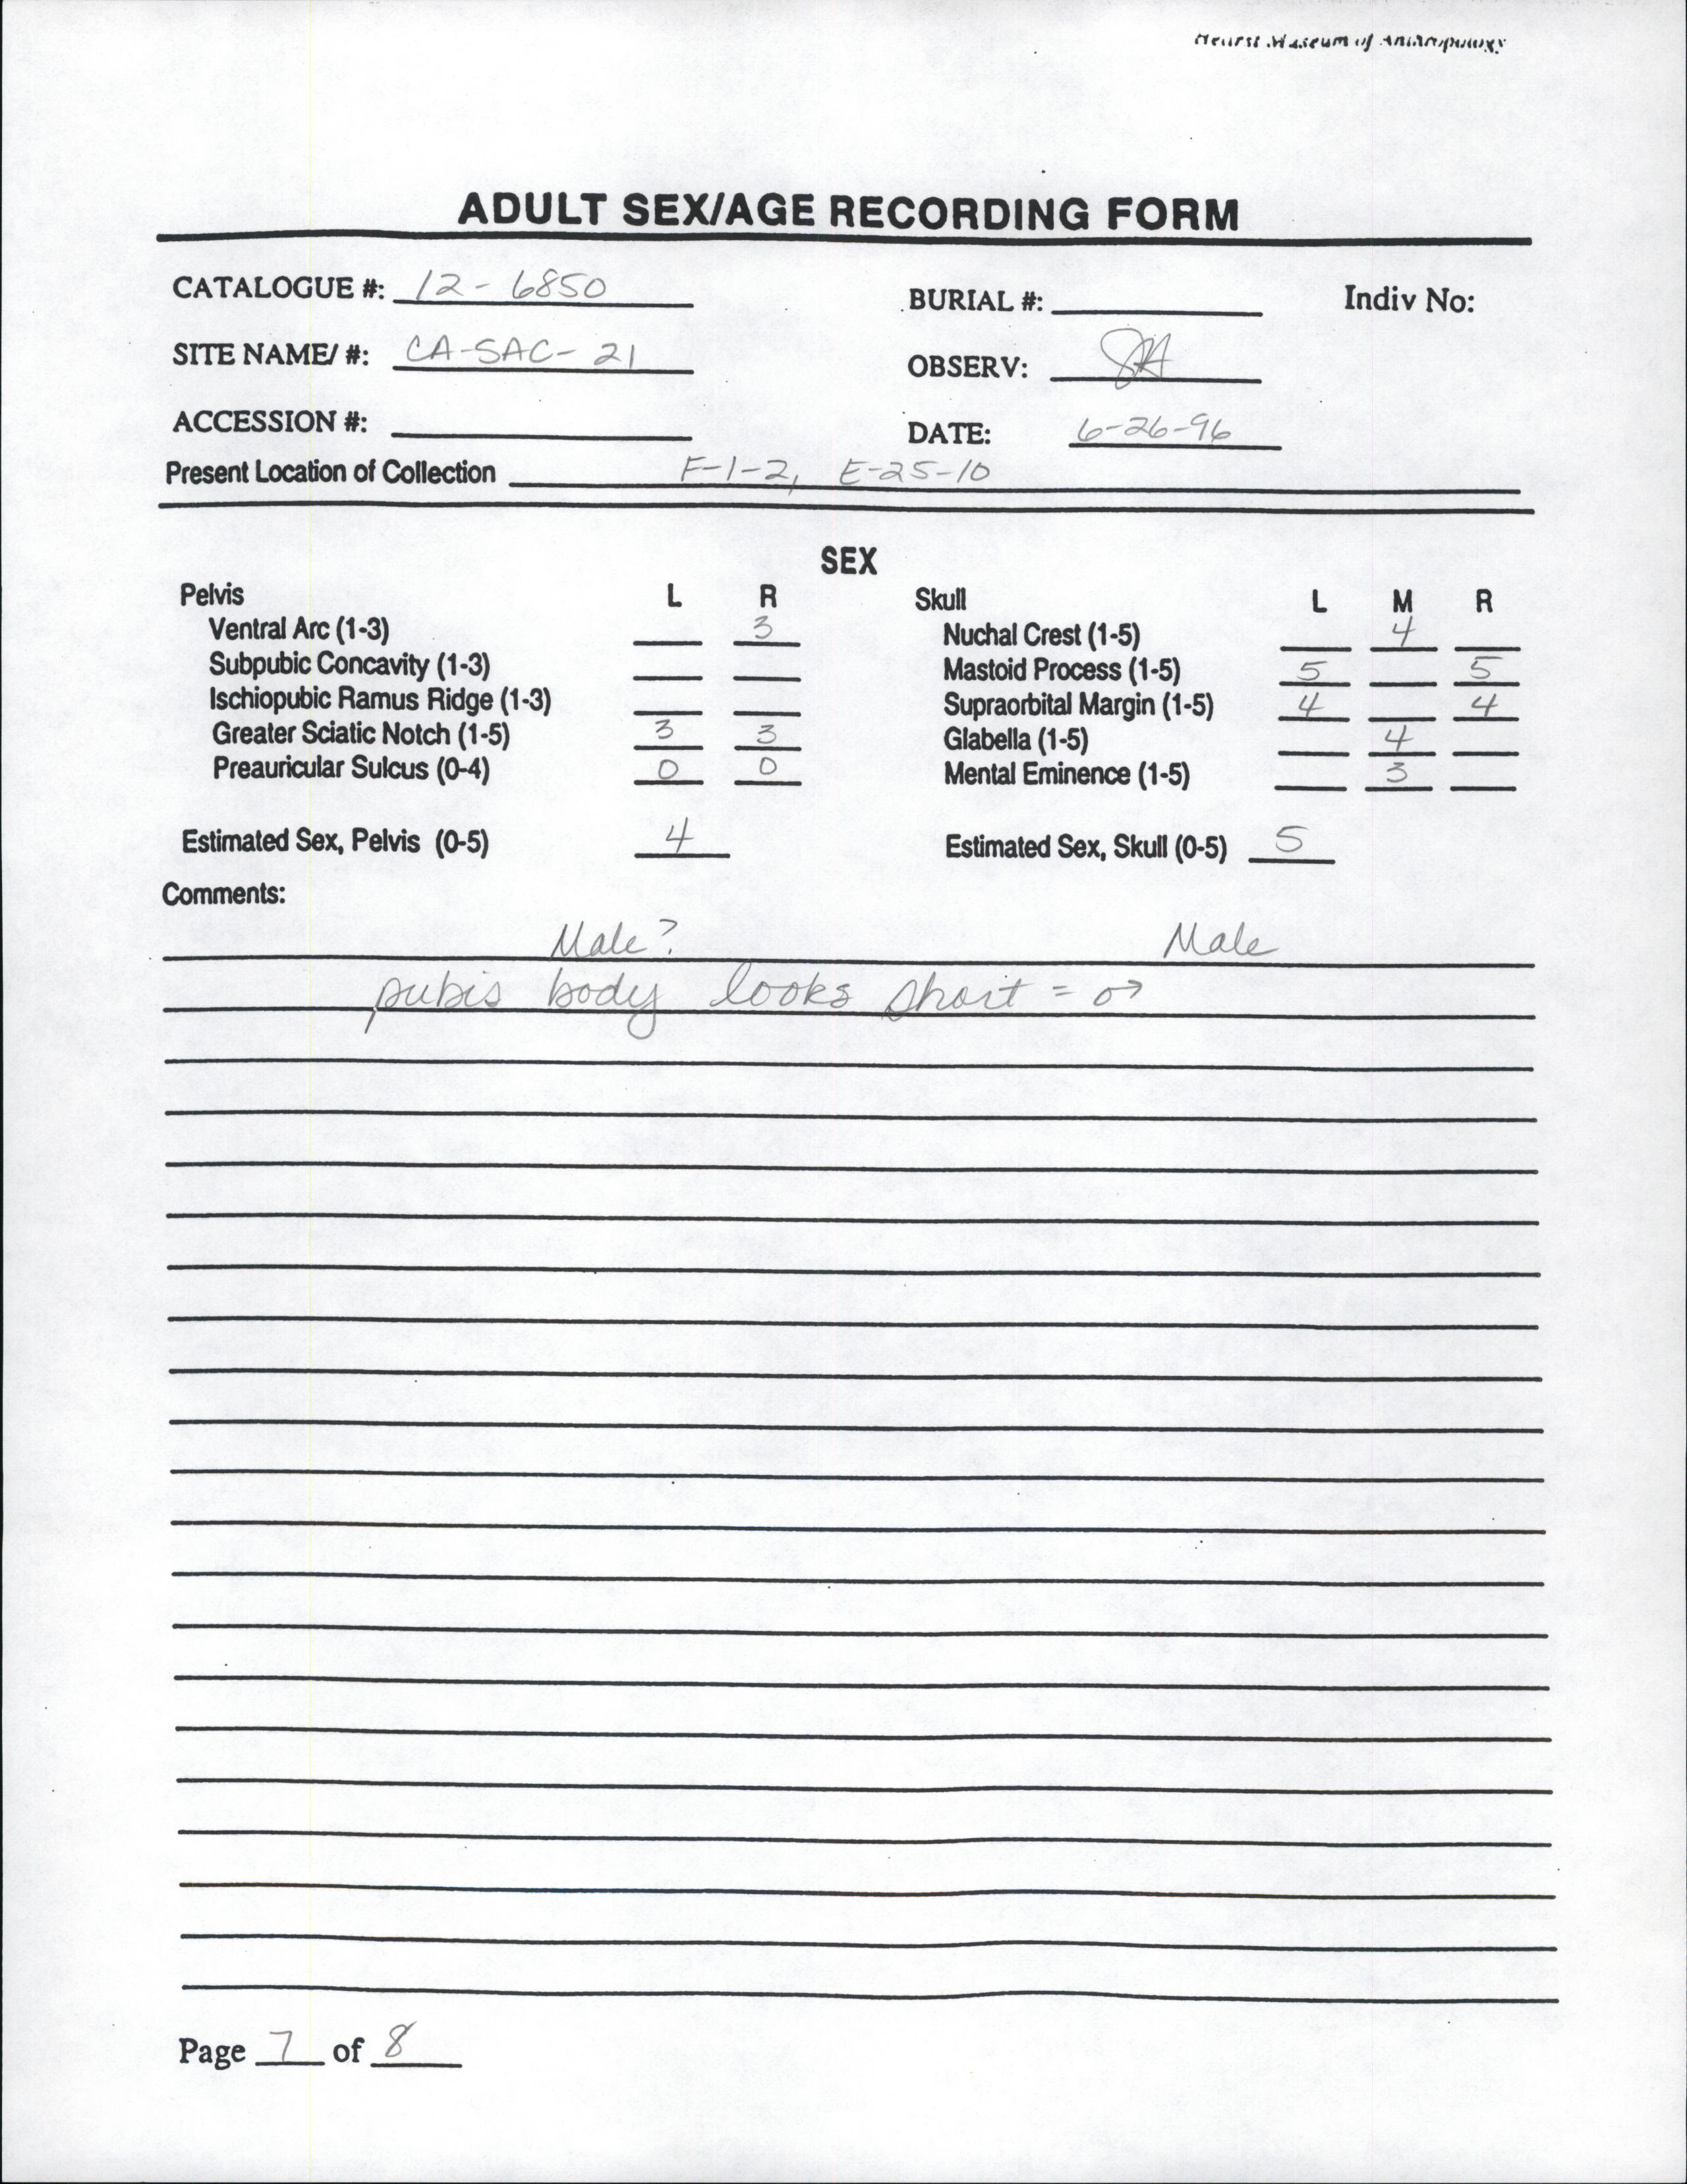 Hearst Museum of Anthropology
ADULT SEX/AGE RECORDING FORM
CATALOGUE #: 12-6850 BURIAL #: Indiv No:
SITE NAME/ #: CA-SAC-21 OBSERV:
ACCESSION #: DATE: 6-26-96
Present Location of Collection F-1-2, E-25-10
SEX
Pelvis L R Skull L M R
Ventral Arc (1-3) 3 Nuchal Crest (1-5) 4
Subpubic Concavity (1-3) Mastoid Process (1-5) 5 5
Ischiopubic Ramus Ridge (1-3) Supraorbital Margin (1-5) 4 4
Greater Sciatic Notch (1-5) 3 3 Glabella (1-5) 4
Preauricular Sulcus (0-4) 0 0 Mental Eminence (1-5) 3
Estimated Sex, Pelvis (0-5) 4 Estimated Sex, Skull (0-5) 5
Comments:
Male? Male
pubis body looks short = ♂
Page 7 of 8